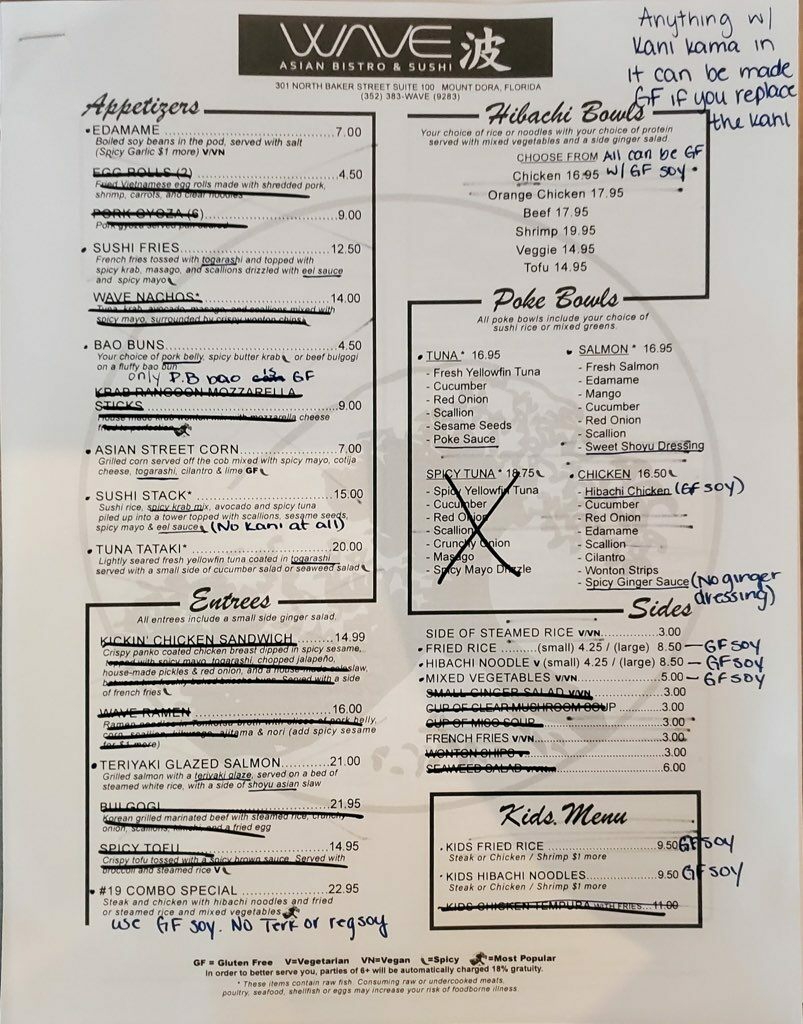 WAVE 波
ASIAN BISTRO & SUSHI
301 NORTH BAKER STREET SUITE 100 MOUNT DORA, FLORIDA
(352) 383-WAVE (9283)
Anything w/
Kani Kama in
it can be made
GF if you replace
the Kani
Appetizers
EDAMAME 7.00
Boiled soy beans in the pod, served with salt
(Spicy Garlic $1 more) V/VN
EGG ROLLS (2) 4.50
Fried Vietnamese egg rolls made with shredded pork,
shrimp, carrots, and clear noodles
PORK GYOZA (6) 9.00
Pork gyoza served pan seared
SUSHI FRIES 12.50
French fries tossed with togarashi and topped with
spicy krab, masago, and scallions drizzled with eel sauce
and spicy mayo
WAVE NACHOS* 14.00
Tuna, krab, avocado, masago, and scallions mixed with
spicy mayo, surrounded by crispy wonton chips
BAO BUNS 4.50
Your choice of pork belly, spicy butter krab or beef bulgogi
on a fluffy bao bun
only P.B bao is GF
KRAB RANGOON MOZZARELLA
STICKS 9.00
House made krab wonton mix with mozzarella cheese
fried to perfection
ASIAN STREET CORN 7.00
Grilled corn served off the cob mixed with spicy mayo, cotija
cheese, togarashi, cilantro & lime GF
SUSHI STACK* 15.00
Sushi rice, spicy krab mix, avocado and spicy tuna
piled up into a tower topped with scallions, sesame seeds,
spicy mayo & eel sauce (No Kani at all)
TUNA TATAKI* 20.00
Lightly seared fresh yellowfin tuna coated in togarashi
served with a small side of cucumber salad or seaweed salad
Entrees
All entrees include a small side ginger salad.
KICKIN' CHICKEN SANDWICH 14.99
Crispy panko coated chicken breast dipped in spicy sesame,
topped with spicy mayo, togarashi, chopped jalapeño,
house-made pickles & red onion, and a house-made coleslaw,
between freshly baked brioche buns. Served with a side
of french fries
WAVE RAMEN 16.00
Ramen noodles in Tonkotsu broth with slices of pork belly,
corn, scallion, kikurage, ajitama & nori (add spicy sesame
for $1 more)
TERIYAKI GLAZED SALMON 21.00
Grilled salmon with a teriyaki glaze, served on a bed of
steamed white rice, with a side of shoyu asian slaw
BULGOGI 21.95
Korean grilled marinated beef with steamed rice, crunchy
onion, scallions, kimchi and a fried egg
SPICY TOFU 14.95
Crispy tofu tossed with a spicy brown sauce. Served with
broccoli and steamed rice V
#19 COMBO SPECIAL 22.95
Steak and chicken with hibachi noodles and fried
or steamed rice and mixed vegetables
use GF soy. No Terk or reg soy
Hibachi Bowls
Your choice of rice or noodles with your choice of protein
served with mixed vegetables and a side ginger salad.
CHOOSE FROM All can be GF
Chicken 16.95 w/ GF soy.
Orange Chicken 17.95
Beef 17.95
Shrimp 19.95
Veggie 14.95
Tofu 14.95
Poke Bowls
All poke bowls include your choice of
sushi rice or mixed greens.
TUNA* 16.95
- Fresh Yellowfin Tuna
- Cucumber
- Red Onion
- Scallion
- Sesame Seeds
- Poke Sauce
SALMON* 16.95
- Fresh Salmon
- Edamame
- Mango
- Cucumber
- Red Onion
- Scallion
- Sweet Shoyu Dressing
SPICY TUNA* 18.75
- Spicy Yellowfin Tuna
- Cucumber
- Red Onion
- Scallion
- Crunchy Onion
- Masago
- Spicy Mayo Drizzle
CHICKEN 16.50
- Hibachi Chicken (GF soy)
- Cucumber
- Red Onion
- Edamame
- Scallion
- Cilantro
- Wonton Strips
- Spicy Ginger Sauce (No ginger
dressing)
Sides
SIDE OF STEAMED RICE V/VN 3.00
FRIED RICE (small) 4.25 / (large) 8.50 — GF SOY
HIBACHI NOODLE V (small) 4.25 / (large) 8.50 — GF SOY
MIXED VEGETABLES V/VN 5.00 — GF SOY
SMALL GINGER SALAD V/VN 3.00
CUP OF CLEAR MUSHROOM SOUP 3.00
CUP OF MISO SOUP 3.00
FRENCH FRIES V/VN 3.00
WONTON CHIPS V 3.00
SEAWEED SALAD V/VN 6.00
Kids Menu
KIDS FRIED RICE 9.50 GF SOY
Steak or Chicken / Shrimp $1 more
KIDS HIBACHI NOODLES 9.50 GF SOY
Steak or Chicken / Shrimp $1 more
KIDS CHICKEN TEMPURA WITH FRIES 11.00
GF = Gluten Free V=Vegetarian VN=Vegan =Spicy =Most Popular
In order to better serve you, parties of 6+ will be automatically charged 18% gratuity.
* These items contain raw fish. Consuming raw or undercooked meats,
poultry, seafood, shellfish or eggs may increase your risk of foodborne illness.